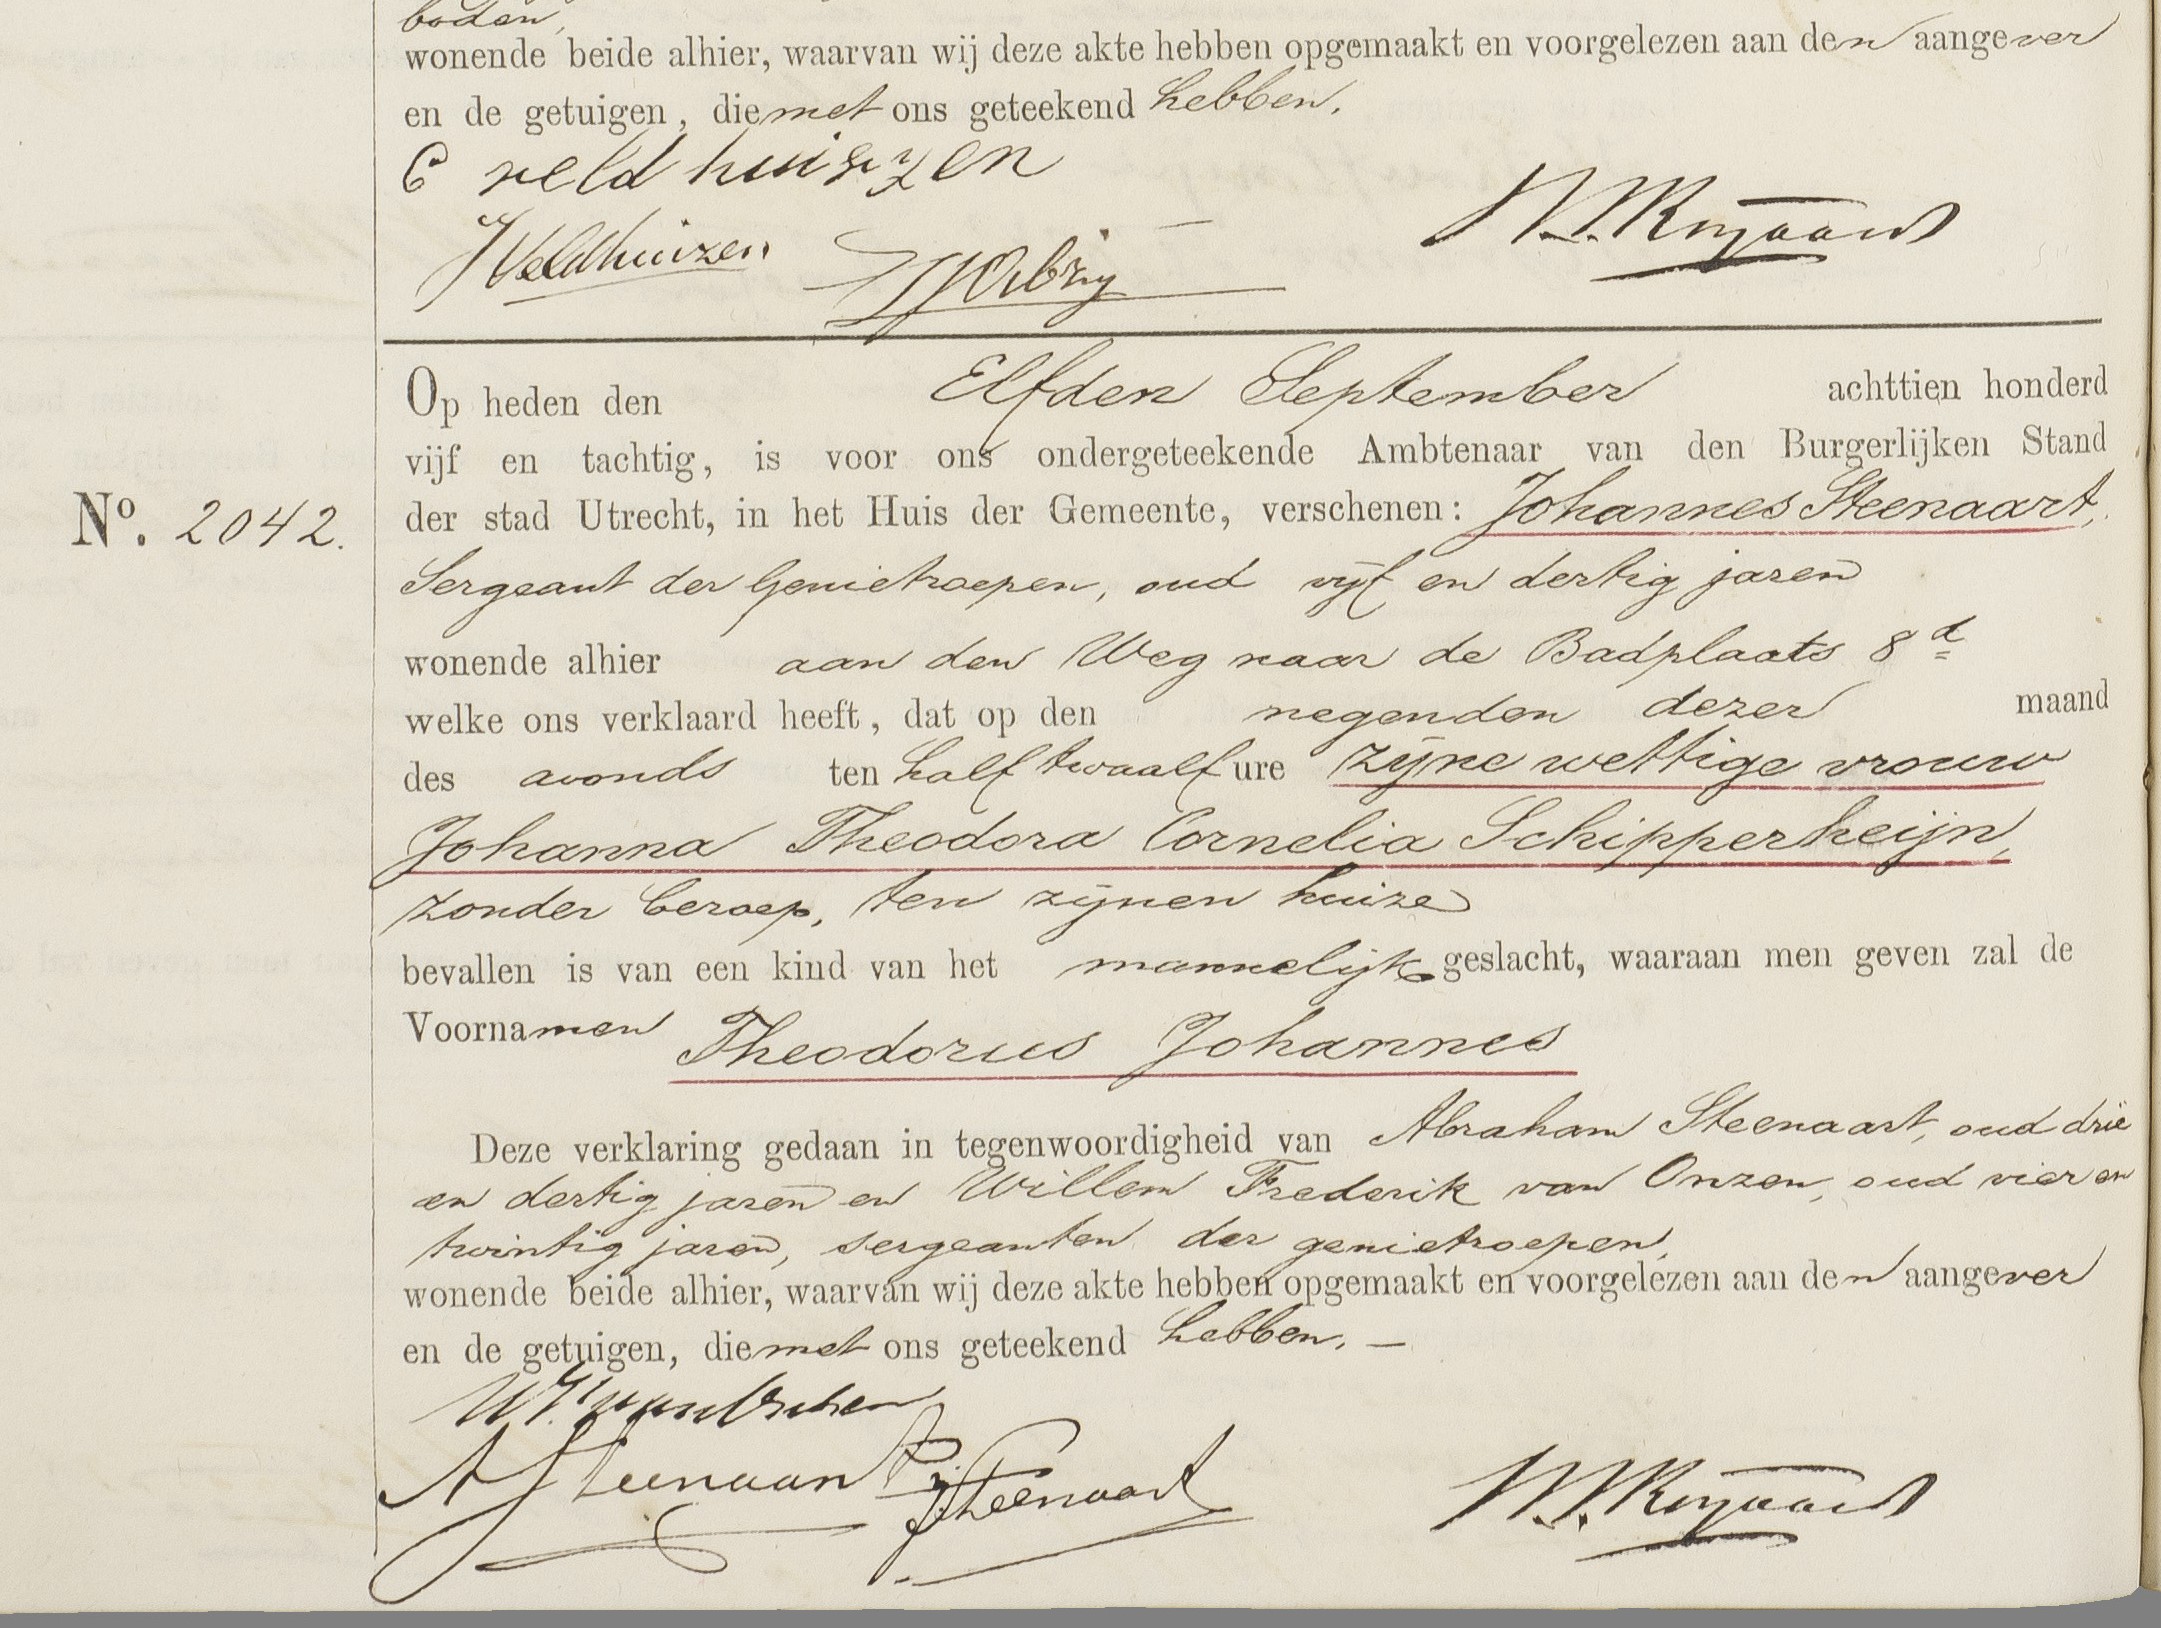 boden,
wonende beide alhier, waarvan wij deze akte hebben opgemaakt en voorgelezen aan den aangever
en de getuigen, die met ons geteekend hebben.
C veldhuizen
Veldhuizen
Op heden den Elfden September achttien honderd
vijf en tachtig, is voor ons ondergeteekende Ambtenaar van den Burgerlijken Stand
der stad Utrecht, in het Huis der Gemeente, verschenen: Johannes Steenaart,
No. 2042.
Sergeant der Genietroepen, oud vijf en dertig jaren
wonende alhier aan den Weg naar de Badplaats 8d
welke ons verklaard heeft, dat op den negenden dezer maand
des avonds ten half twaalf ure zijne wettige vrouw
Johanna Theodora Cornelia Schipperheijn,
zonder beroep, ten zijnen huize
bevallen is van een kind van het mannelijk geslacht, waaraan men geven zal de
Voornamen Theodorus Johannes
Deze verklaring gedaan in tegenwoordigheid van Abraham Steenaart, oud drie
en dertig jaren en Willem Frederik van Onzen, oud vier en
twintig jaren, sergeanten der genietroepen,
wonende beide alhier, waarvan wij deze akte hebben opgemaakt en voorgelezen aan den aangever
en de getuigen, die met ons geteekend hebben. —
A Steenaart
J Steenaart